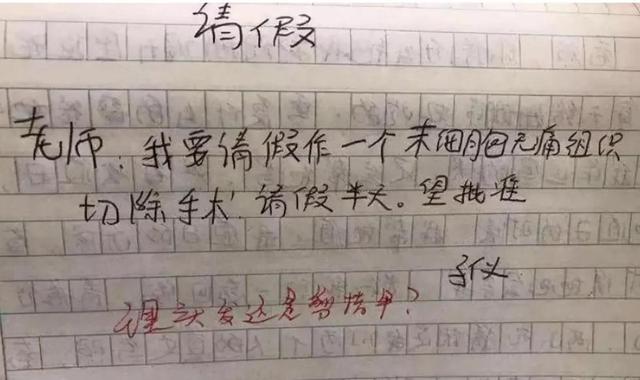 请假
老师:我要请假作一个末细胞无痛组织
切除手术.请假半天。望批准
子仪
理头发还是剪指甲?